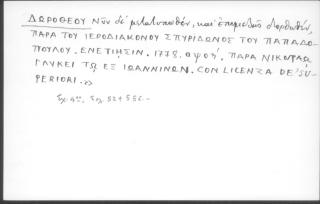 ΔΩΡΟΘΕΟΥ Νῦν δὲ μετατυπωθὲν, καὶ ἐπιμελῶς διορθωθὲν,
ΠΑΡΑ ΤΟΥ ΙΕΡΟΔΙΑΚΟΝΟΥ ΣΠΥΡΙΔΩΝΟΣ ΤΟΥ ΠΑΠΑΔΟ-
ΠΟΥΛΟΥ. ΕΝΕΤΙΗΣΙΝ. 1778. ΠΑΡΑ ΝΙΚΟΛΑΩ
ΓΛΥΚΕΙ ΤΩ ΕΞ ΙΩΑΝΝΙΝΩΝ. CON LICENZA DE' SU-
PERIORI.»